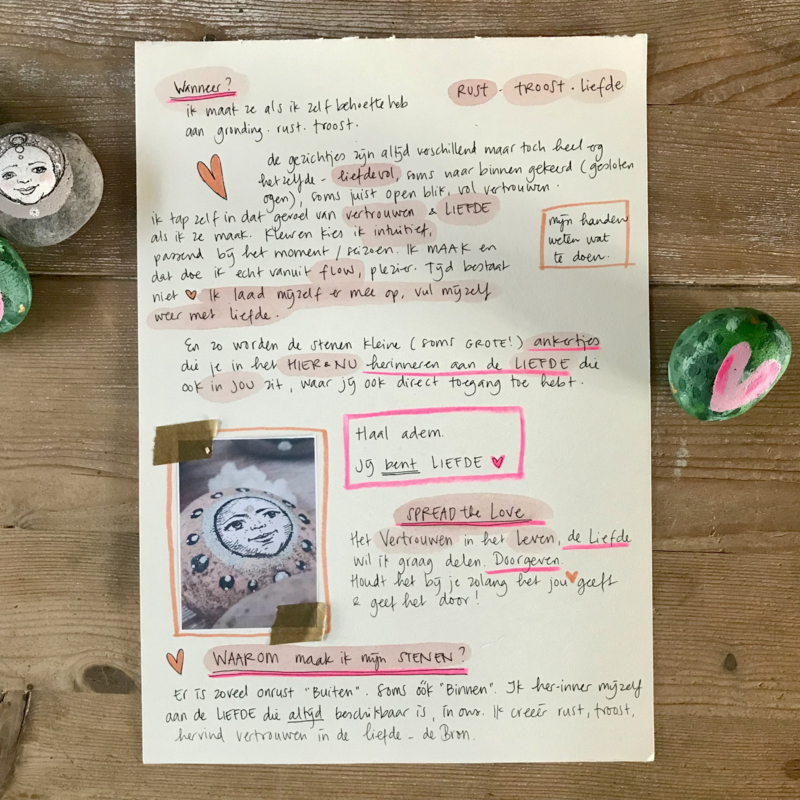 Wanneer?
RUST - TROOST. Liefde
ik maak ze als ik zelf behoefte heb
aan gronding. rust. troost.
de gezichtjes zijn altijd verschillend maar toch heel erg
hetzelfde - liefdevol, soms naar binnen gekeerd (gesloten
ogen), soms juist open blik, vol vertrouwen.
ik tap zelf in dat gevoel van vertrouwen & LIEFDE
als ik ze maak. Kleuren kies ik intuitief,
passend bij het moment / seizoen. Ik MAAK en
dat doe ik echt vanuit flow, plezier. Tijd bestaat
niet ♥ Ik laad mijzelf er mee op, vul mijzelf
weer met liefde.
mijn handen
weten wat
te doen.
En zo worden de stenen kleine (soms GROTE!) ankertjes
die je in het HIER & NU herinneren aan de LIEFDE die
ook in JOU zit, waar jij ook direct toegang toe hebt.
Haal adem.
Jij bent LIEFDE ♥
SPREAD the Love
Het Vertrouwen in het Leven, de Liefde
wil ik graag delen. Doorgeven.
Houdt het bij je zolang het jou ♥ geeft
& geef het door!
WAAROM maak ik mijn STENEN?
Er is zoveel onrust "Buiten". Soms óók "Binnen". Ik her-inner mijzelf
aan de LIEFDE die altijd beschikbaar is, in ons. Ik creëer rust, troost,
hervind vertrouwen in de liefde - de Bron.